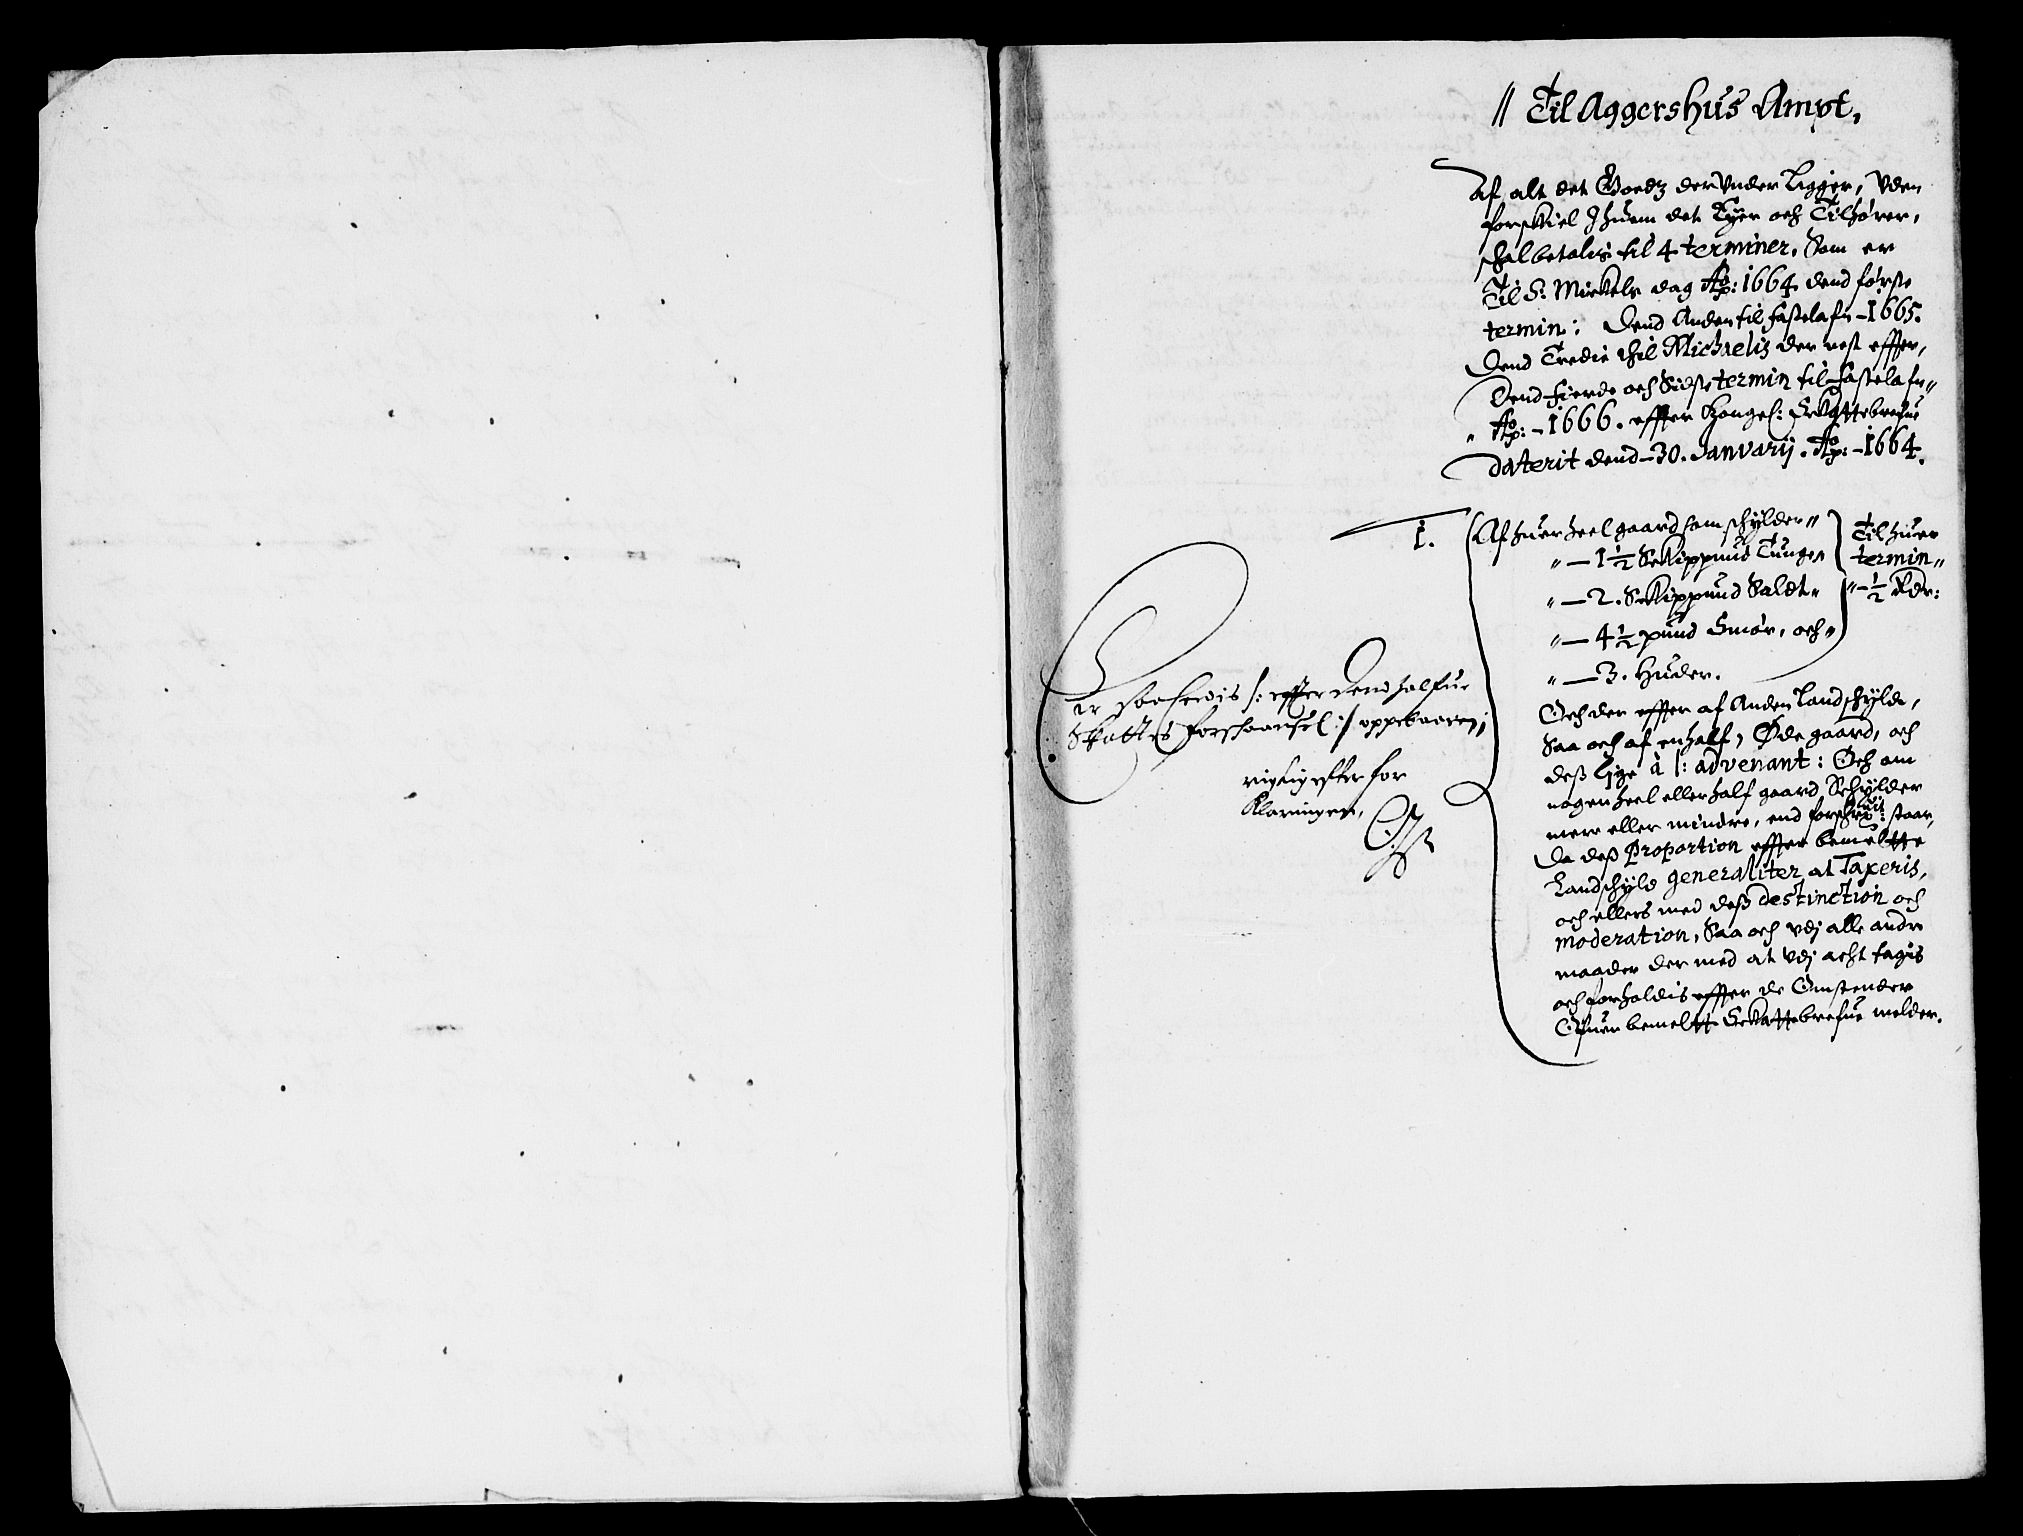 // Til Aggershus Ampt,
Af alt det Goedz der Vnder Ligger, Vden
forschiel J huem det Eyer och Tilhører,
schal betalis til 4 terminer, Som er
Til S: Mickels dag Ao: 1664 dend første
termin: Dend Anden til fastelafn - 1665.
Dend Tredie thil Michaelis der nest effter,
Dend fierde och Sidste termin til fastelafn"
" Ao: - 1666. effter Kongel: Skattebrefue
daterit dend - 30. Janvarij. Ao: - 1664.
1. Af huer heel gaard som schylder "
" — 1 1/2 Schippund Tunge
" — 2. Schippund Saldt "
" — 4 1/2 pund Smør, och "
" — 3. Huder.
Til huer
termin "
" - 1/2 Rdr:
Och der effter af Anden Landschyld,
Saa och af en half, Øde gaard, och
dess Lige à l: advenant: Och om
nogen heel eller half gaard Schylder
mere eller mindre, end forschreuit: staar,
Da dess Proportion effter bemeltte
Landschyld generaliter at Taxeris,
och ellers med dess destinction och
moderation, Saa och vdj alle andre
maader der med at vdj acht tagis
och forholdis effter de Omstender
Ofuen bemeltt Schattebrefue melder.
Er saaledis /: effter dend halfue
Skattes forschaansel :/ oppebaaren;
rigtig efter for
Klaringen,